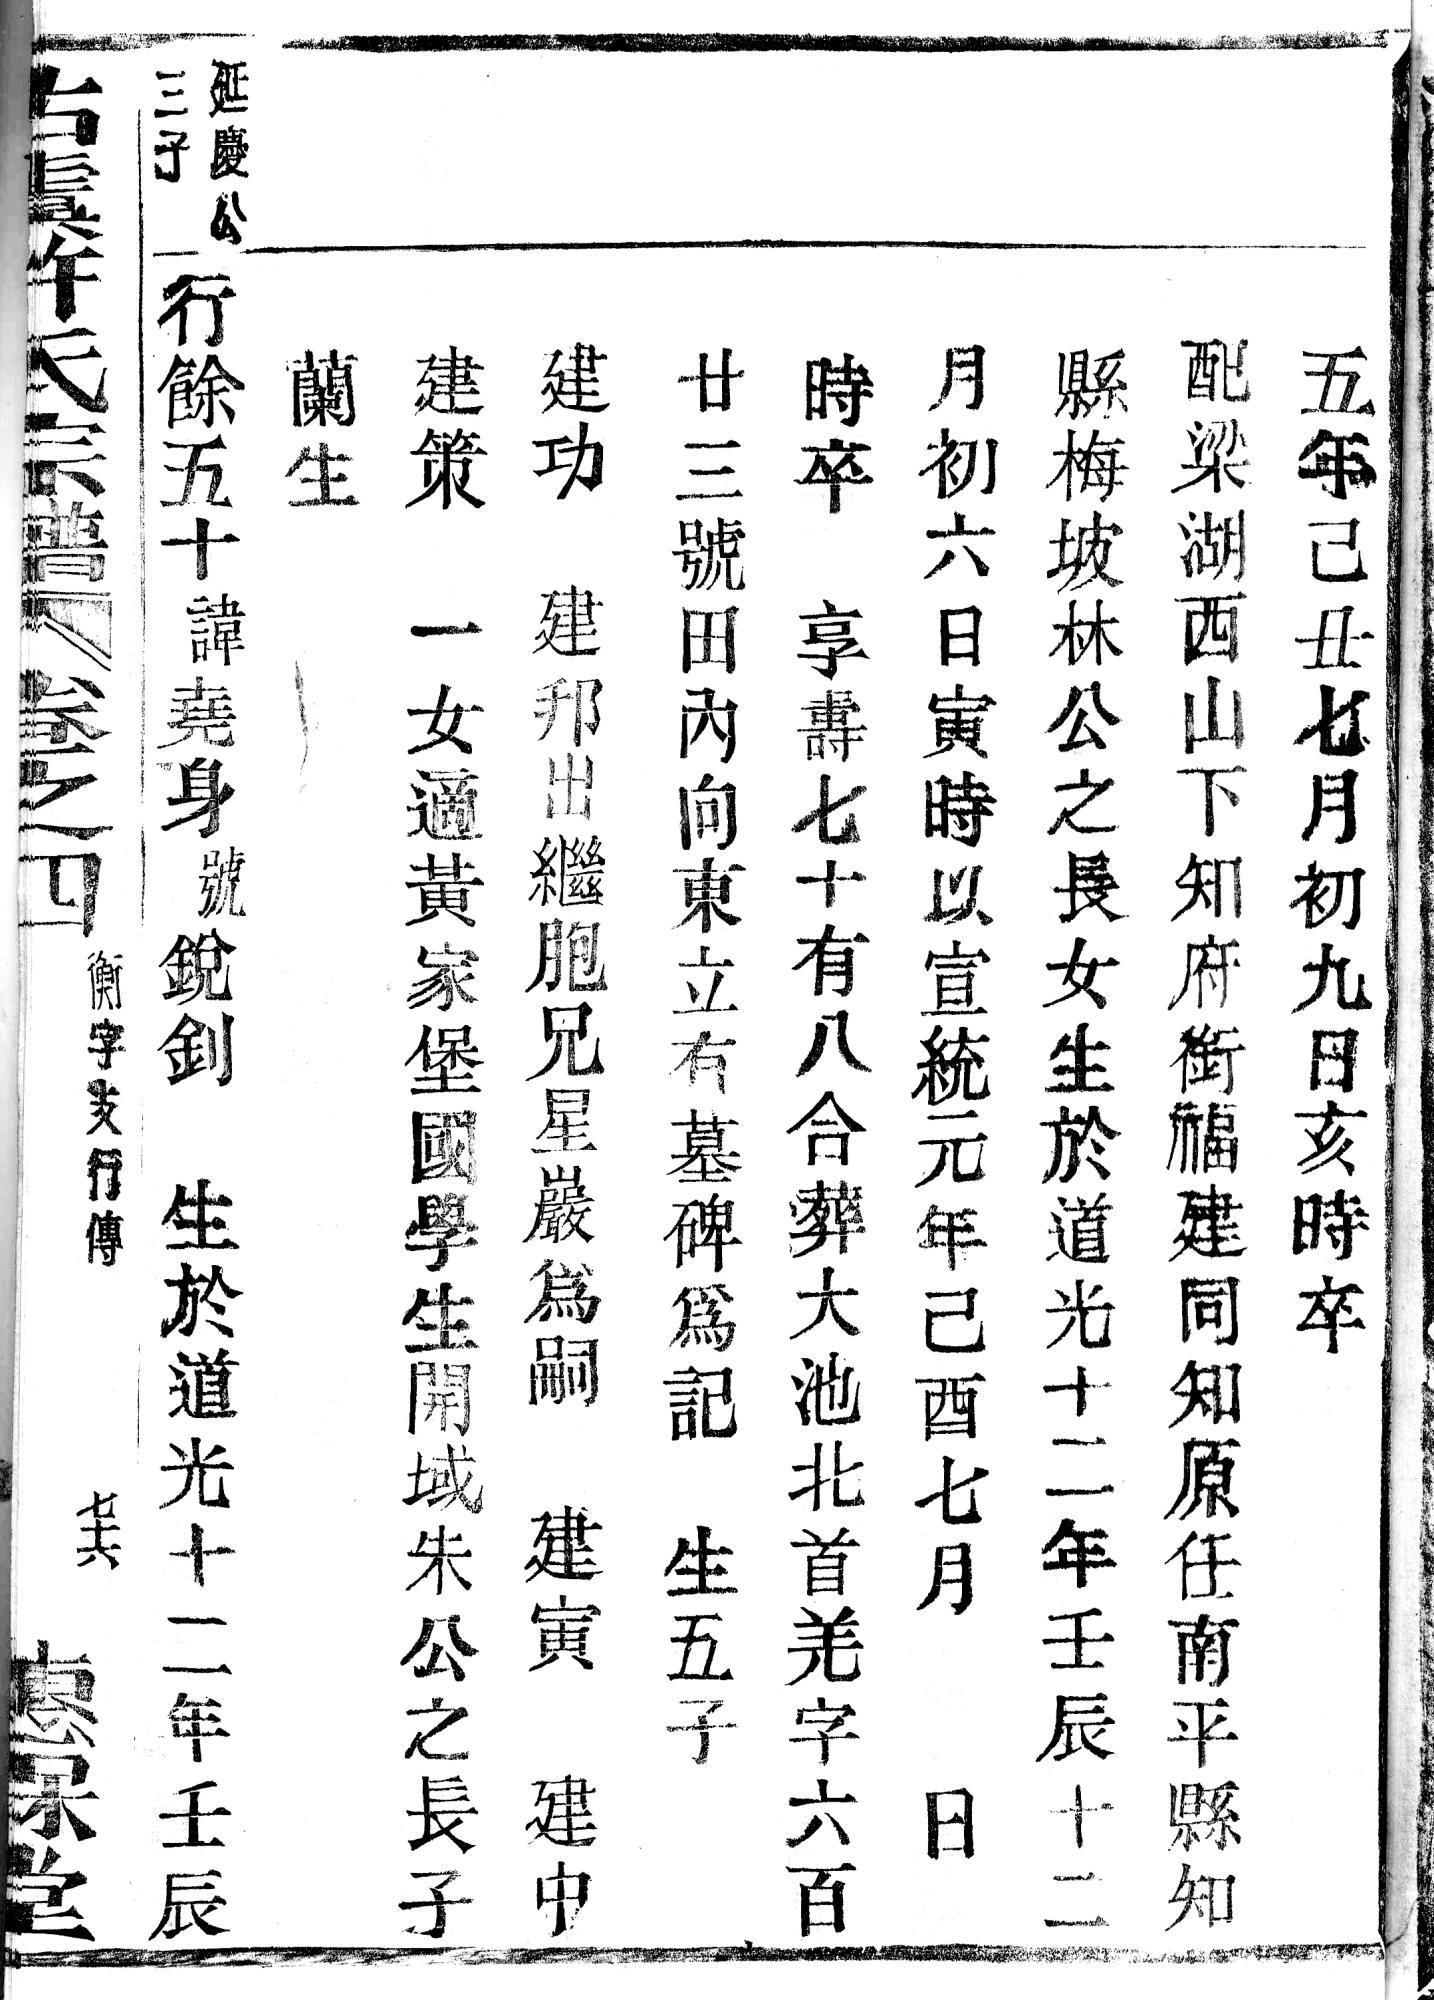 五年己丑七月初九日亥時卒
配梁湖西山下知府銜福建同知原任南平縣知
縣梅坡林公之長女生於道光十二年壬辰十二
月初六日寅時以宣統元年己酉七月　　日
時卒　享壽七十有八合葬大池北首羌字六百
廿三號田內向東立有墓碑爲記　生五子
建功　建邦出繼胞兄星巖爲嗣　建寅　建中
建策　一女適黃家堡國學生開域朱公之長子
蘭生
延慶公
三子
行餘五十諱堯身號銳釗　生於道光十二年壬辰
古虞許氏宗譜　卷之四
衡字支行傳
七六
惠杲堂